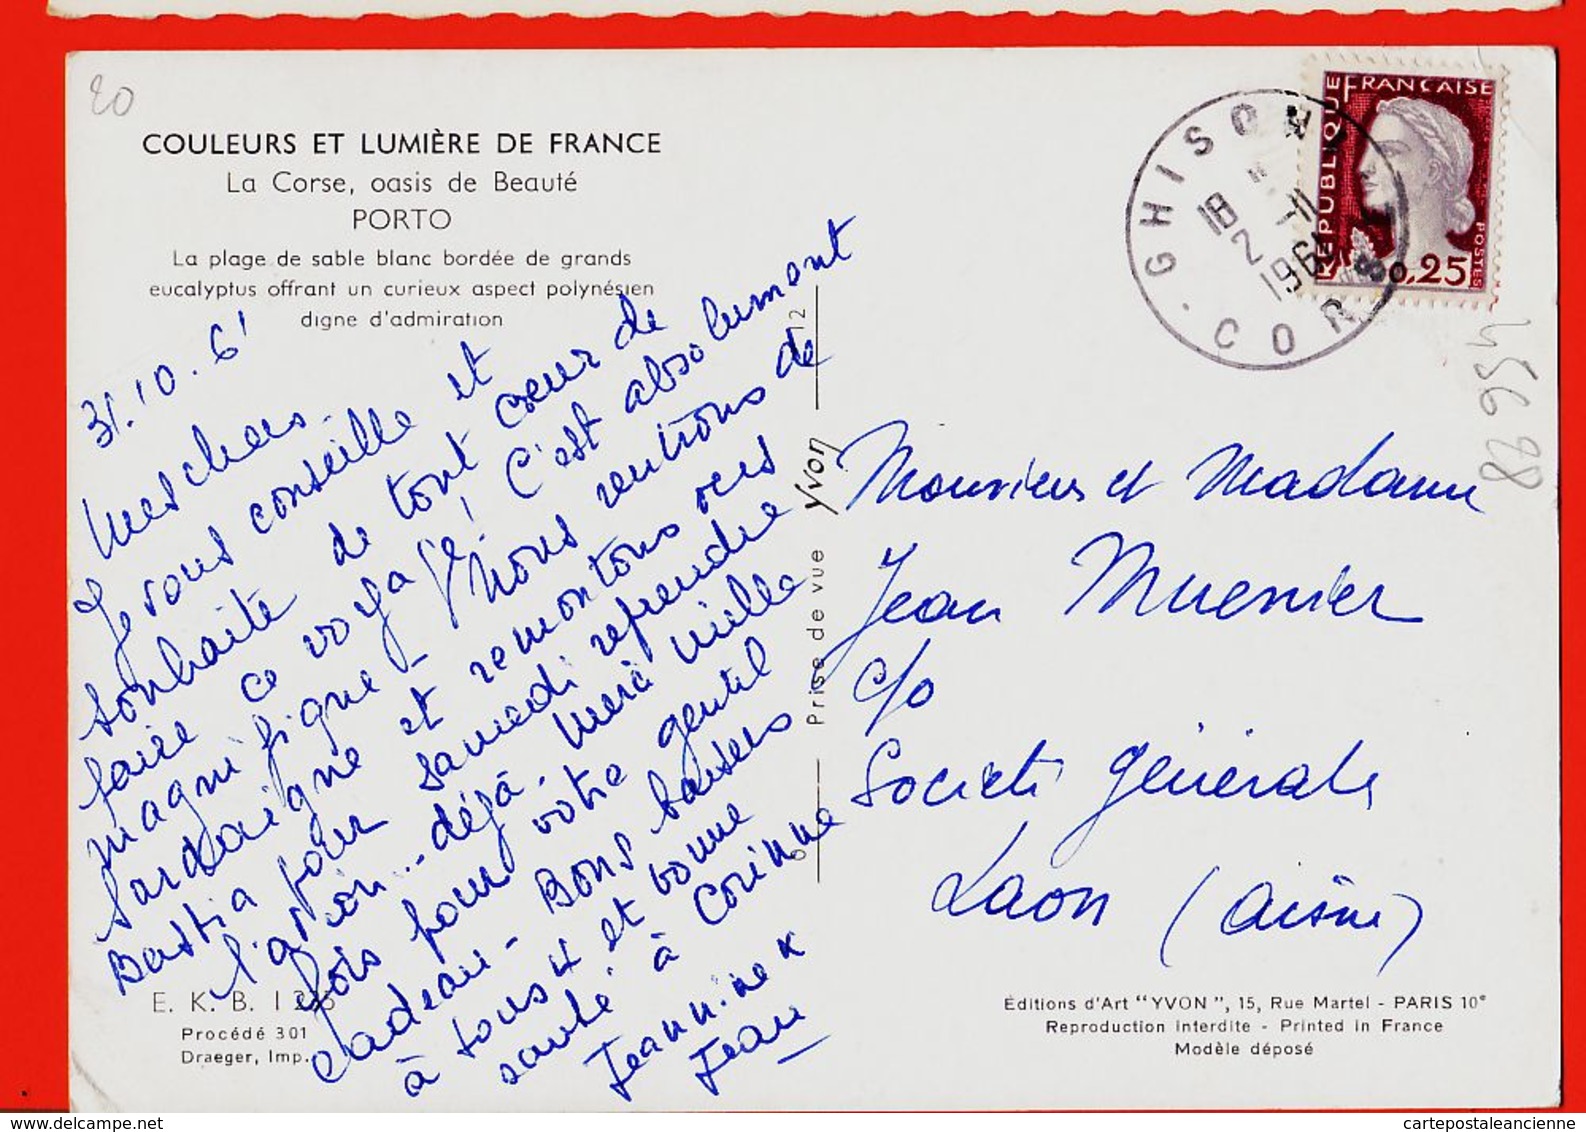 20
COULEURS ET LUMIÈRE DE FRANCE
La Corse, oasis de Beauté
PORTO
La plage de sable blanc bordée de grands
eucalyptus offrant un curieux aspect polynésien
digne d'admiration
31.10.61
Mes chers.
Je vous conseille et
souhaite de tout coeur de
faire ce voyage! C'est absolument
magnifique - Nous rentrons de
Sardaigne et remontons vers
Bastia pour samedi reprendre
l'avion... déjà. Merci mille
fois pour votre gentil
cadeau - Bons baisers
à tous 4 et bonne
santé à Corinne
Jeannine
Jean
E. K. B. 1
Procédé 301
Draeger, Imp.
12
Prise de vue Yvon
RÉPUBLIQUE FRANÇAISE
POSTES
0,25
GHISON
CORSE
18
2 - 11
196
45698
Monsieur et Madame
Jean Muenier
c/o
Société générale
Laon (Aisne)
Éditions d'Art "YVON", 15, Rue Martel - PARIS 10e
Reproduction interdite - Printed in France
Modèle déposé
cartepostaleancienne.com